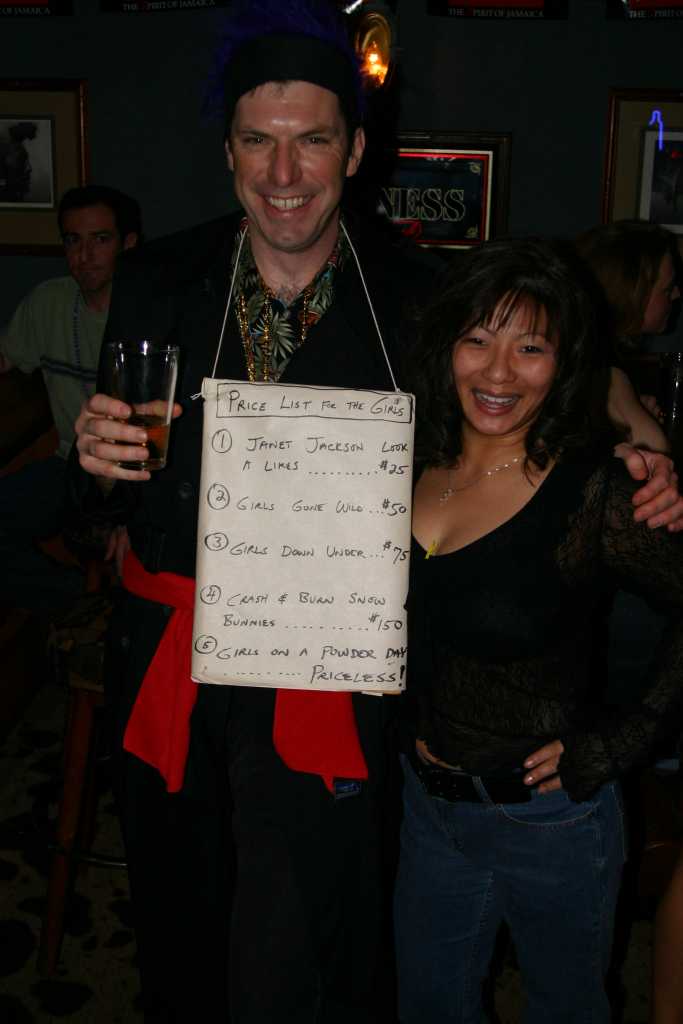 THE SPIRIT OF JAMAICA
THE SPIRIT OF JAMAICA
THE SPIRIT OF JAMAICA
NESS
PRICE LIST FOR THE GIRLS
1 JANET JACKSON LOOK
A LIKES .......... $25
2 GIRLS GONE WILD ... $50
3 GIRLS DOWN UNDER ... $75
4 CRASH & BURN SNOW
BUNNIES ........... $150
5 GIRLS ON A POWDER DAY
. ........ PRICELESS!